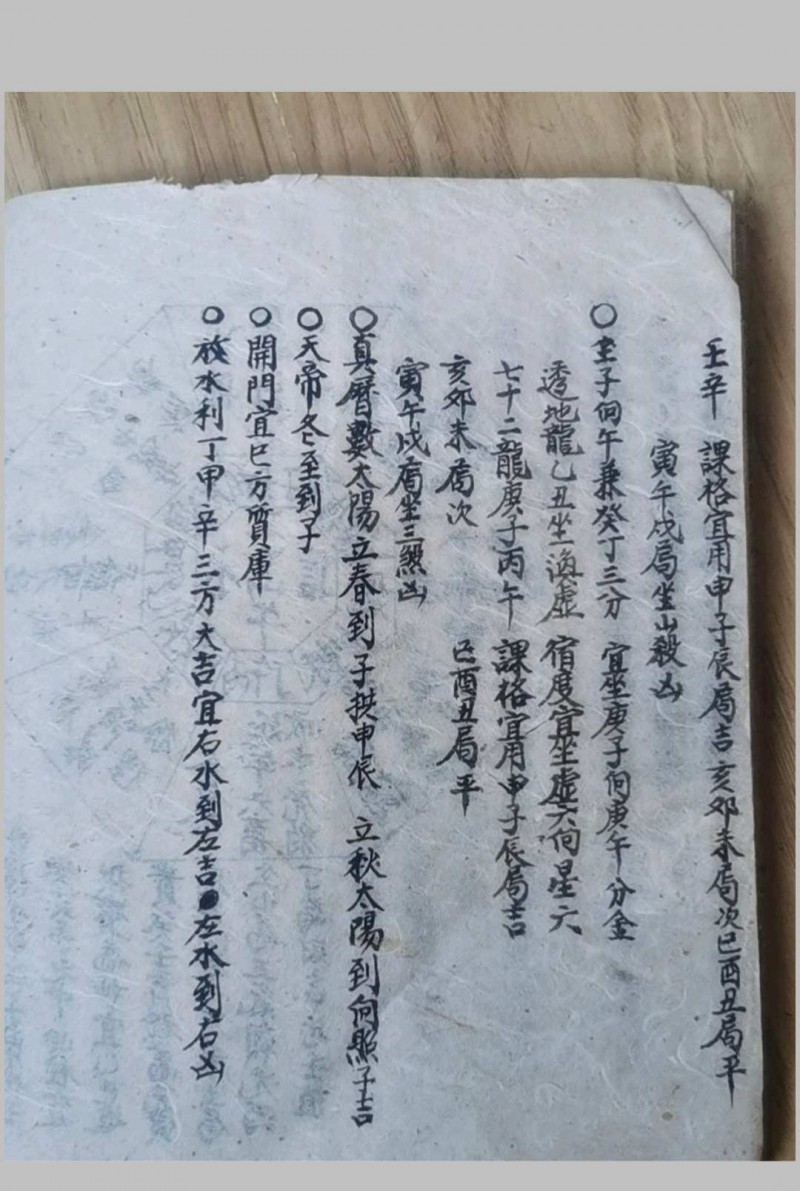 壬辛 課格宜用申子辰局吉亥卯未局次巳酉丑局平
寅午戌局坐山殺凶
○坐子向午兼癸丁三分 宜坐庚子向庚午分金
透地龍乙丑坐海虛 宿度宜坐虛六向星六
七十二龍庚子丙午 課格宜用申子辰局吉
亥卯未局次 巳酉丑局平
寅午戌局坐三煞凶
○真曆數太陽立春到子拱申辰 立秋太陽到向照子吉
○天帝冬至到子
○開門宜巳方質庫
○放水利丁甲辛三方大吉宜右水到左吉 左水到右凶